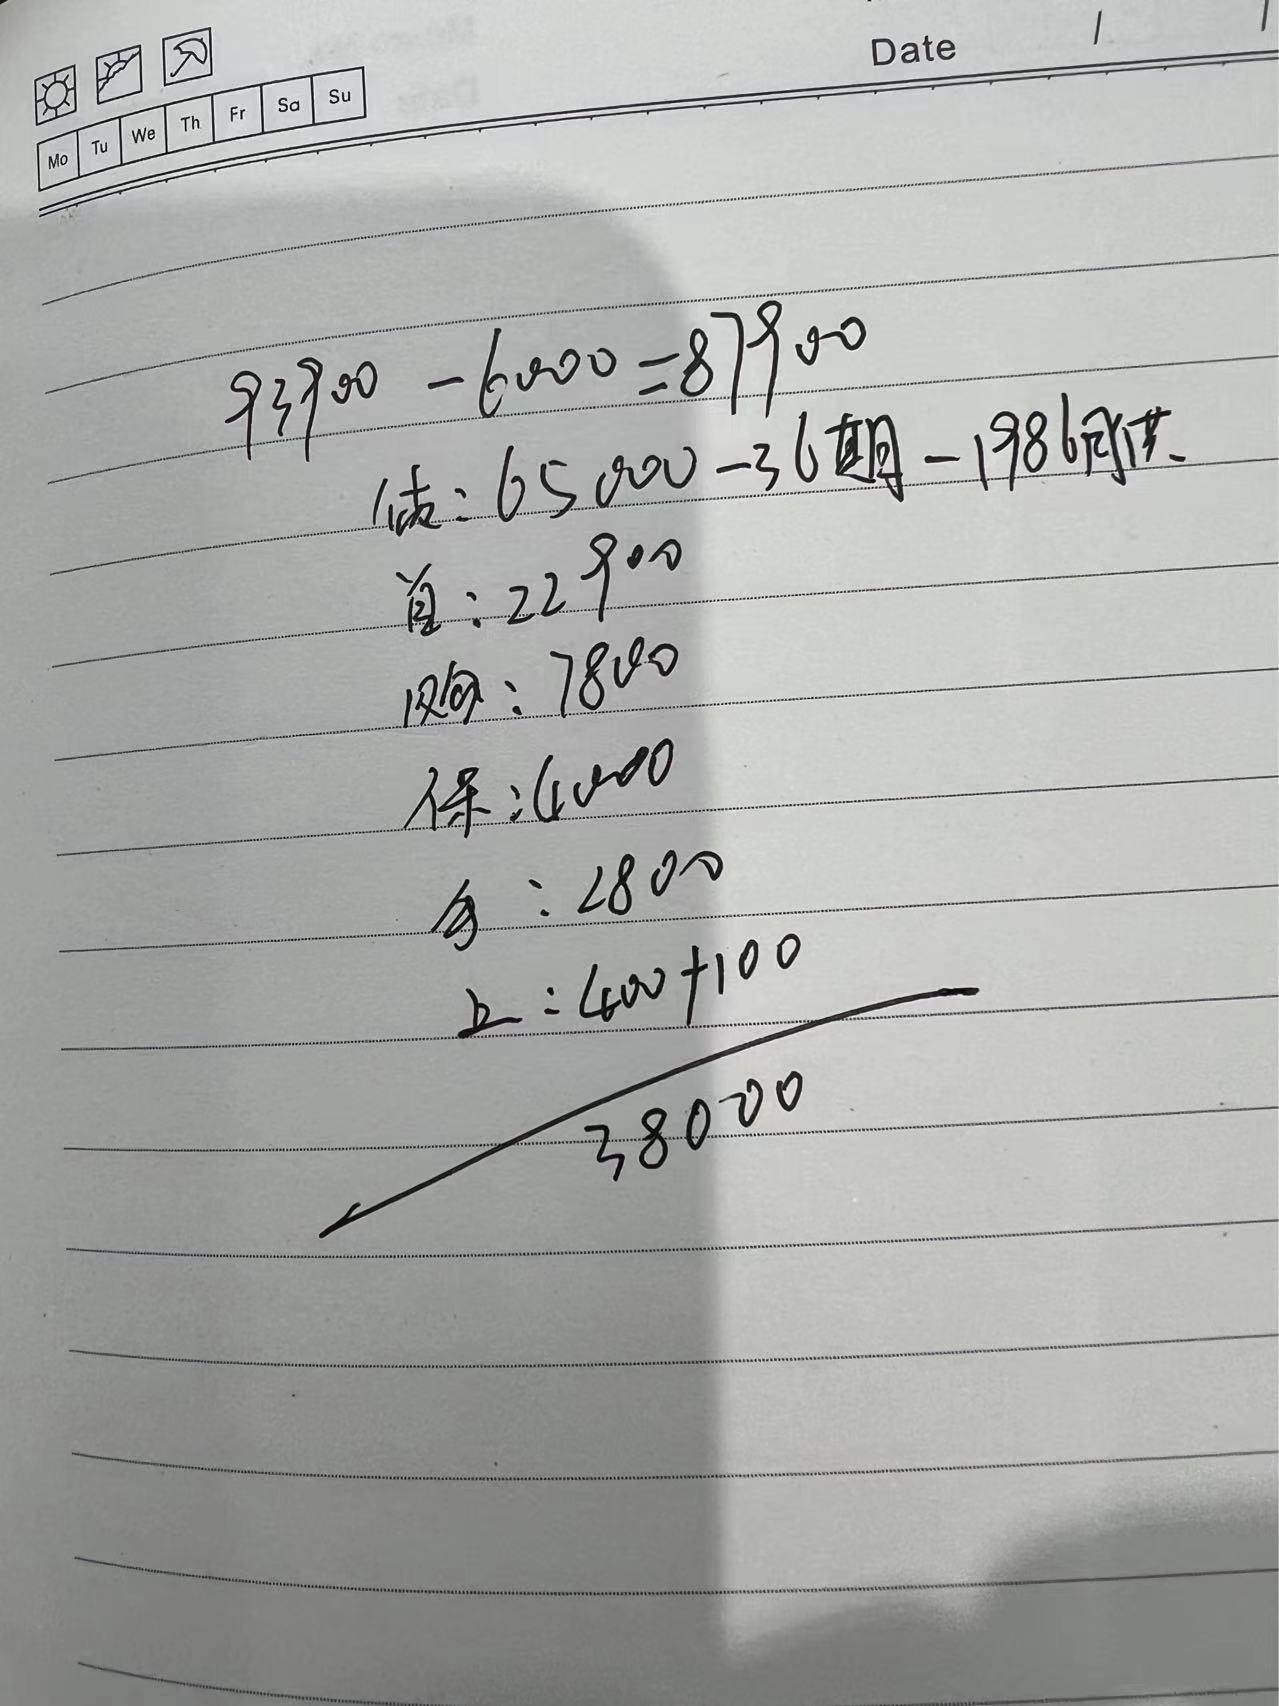 Date / /
Mo Tu We Th Fr Sa Su
93900 - 6000 = 87900
贷: 65000 - 36期 - 1986月供
首: 22900
购: 7800
保: 4000
: 2800
上: 400+100
38000